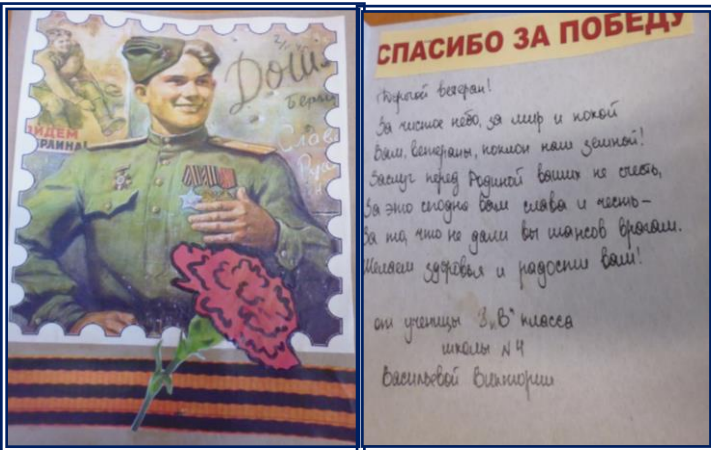 Дош
Берл
Слав
Рус
ЙДЕМ
РЛИНА!
СПАСИБО ЗА ПОБЕДУ
Дорогой ветеран!
За чистое небо, за мир и покой
Вам, ветераны, поклон наш земной!
Заслуг перед Родиной ваших не счесть,
За это сегодня вам слава и честь –
За то, что не дали вы шансов врагам.
Желаем здоровья и радости вам!
от ученицы 3 „В" класса
школы N 4
Васильевой Виктории